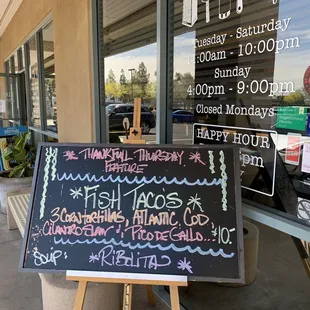 Tuesday - Saturday
11:00am - 10:00pm
Sunday
4:00pm - 9:00pm
Closed Mondays
HAPPY HOUR
THANKFULL THURSDAY
FEATURE
FISH TACO'S
3 CORN TORTILLAS, ATLANTIC COD
CILANTRO SLAW & PICO DE GALLO... $10.
SOUP RIBOLITA